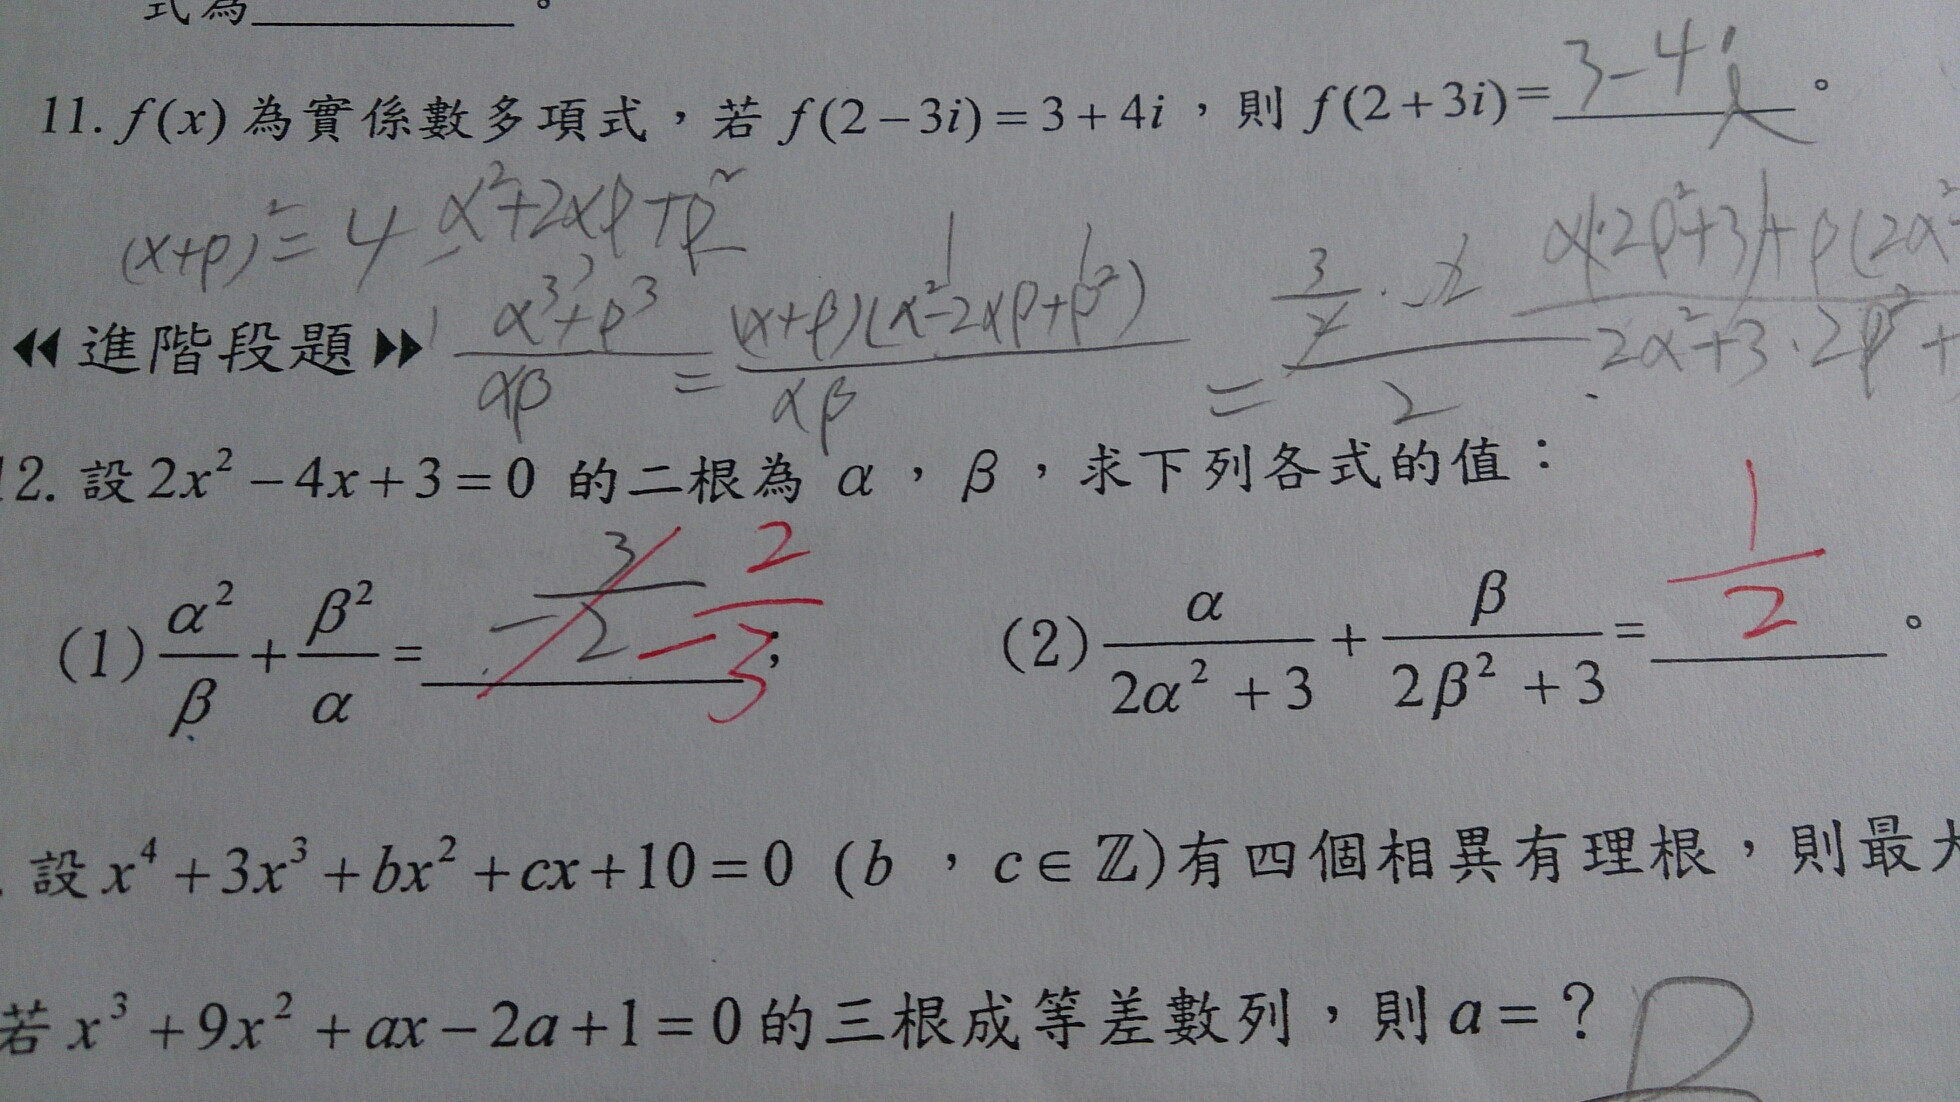 式為 。
11. f(x)為實係數多項式，若 f(2-3i)=3+4i，則 f(2+3i)= 3-4i 。
(α+β)²=4 α²+2αβ+β²
α(2β²+3)+β(2α²
2α²+3·2β²+
◀◀進階段題▶▶ α³+β³/αβ = (α+β)(α²-2αβ+β²)/αβ =
12. 設 2x²-4x+3=0 的二根為 α，β，求下列各式的值：
(1) α²/β + β²/α = 3/-2 -2/3 ; (2) α/(2α²+3) + β/(2β²+3) = 1/2 。
設 x⁴+3x³+bx²+cx+10=0 (b，c∈ℤ)有四個相異有理根，則最
若 x³+9x²+ax-2a+1=0 的三根成等差數列，則 a=？